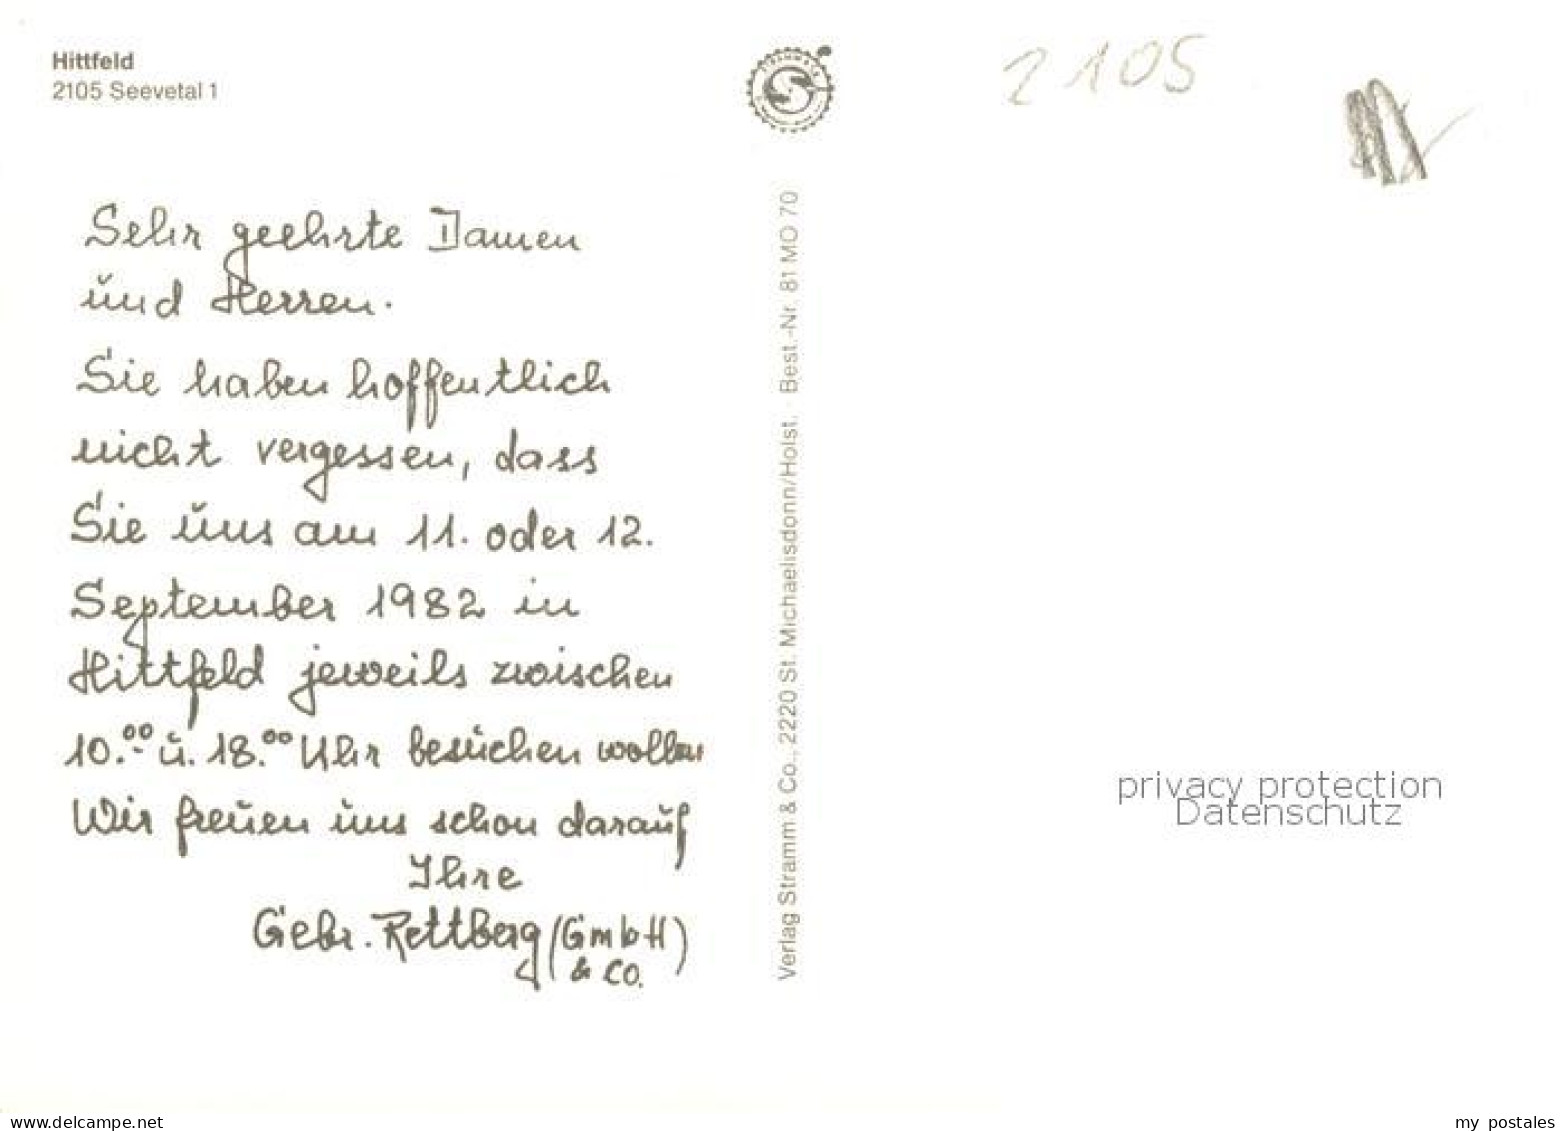 Hittfeld
2105 Seevetal 1
2105
Sehr geehrte Damen
und Herren.
Sie haben hoffentlich
nicht vergessen, dass
Sie uns am 11. oder 12.
September 1982 in
Hittfeld jeweils zwischen
10.00 u. 18.00 Uhr besuchen wollen
Wir freuen uns schon darauf
Ihre
Gebr. Rettberg (GmbH)
& CO.
Verlag Stramm & Co., 2220 St. Michaelisdonn/Holst. · Best.-Nr. 81 MO 70
privacy protection
Datenschutz
delcampe.net
my_postales